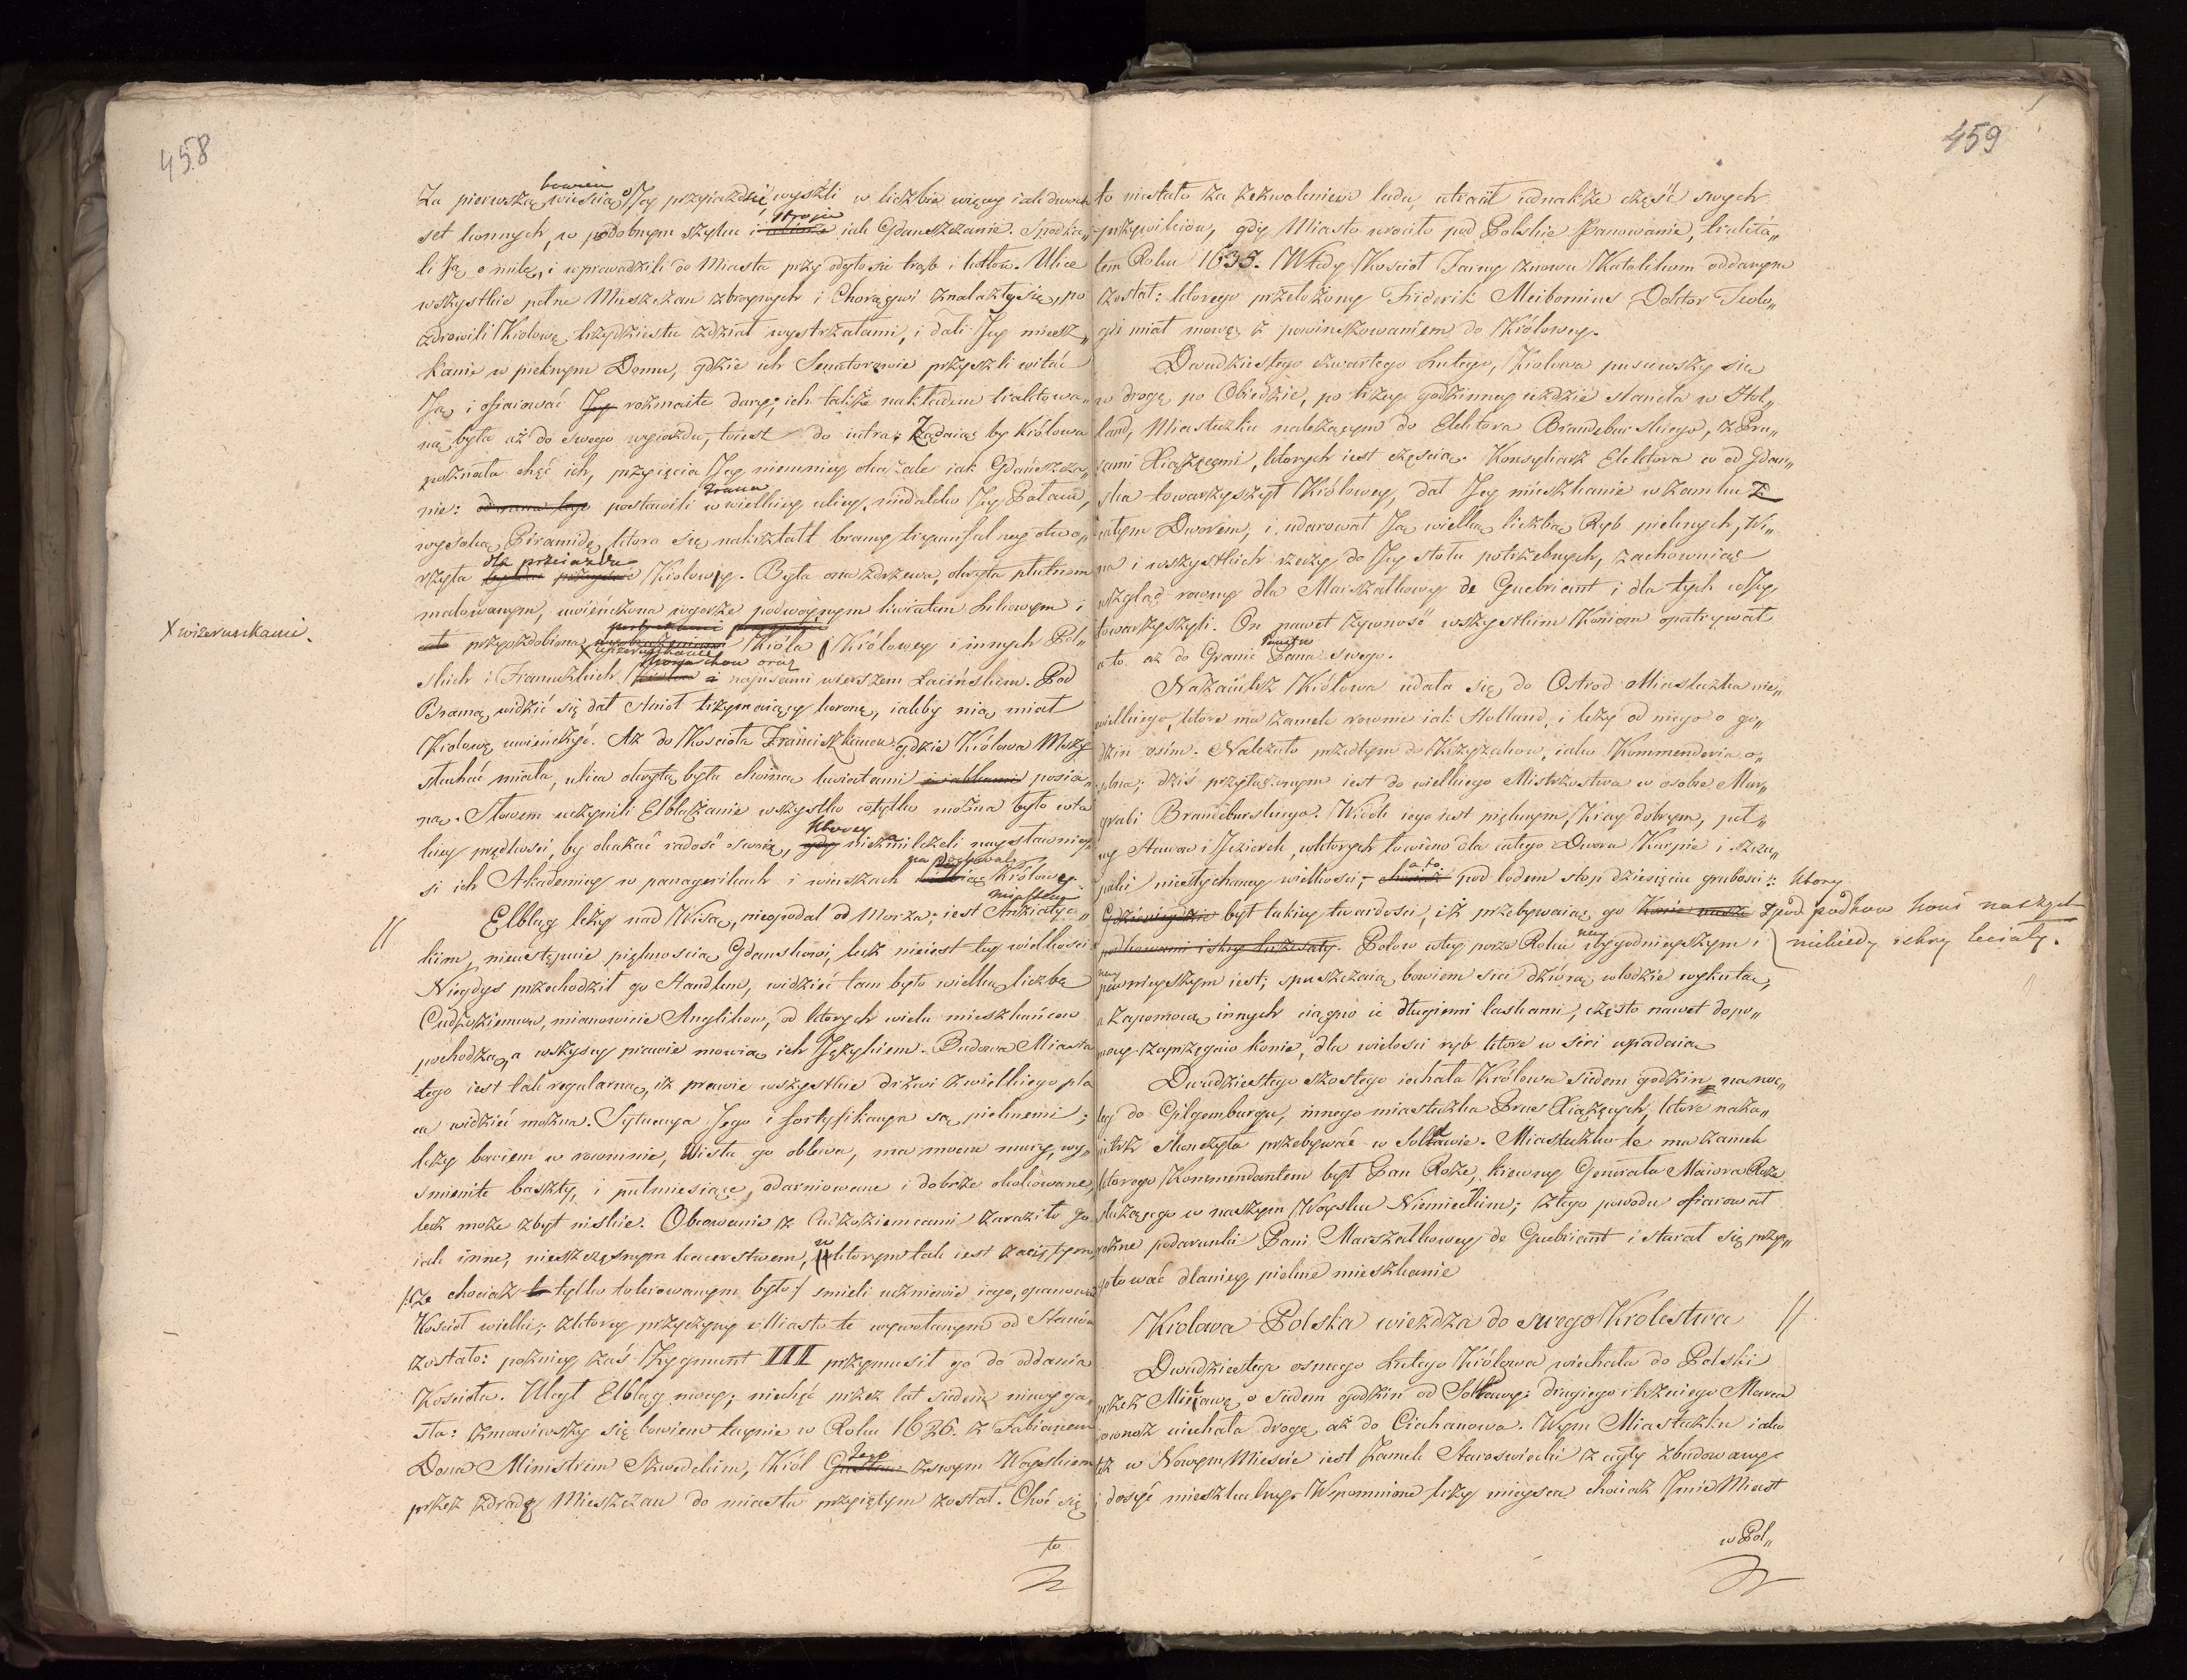 458
Za pierwszą bowiem wieścią o Jey przyiazdzie wyszli w liczbie więcey iak dwóch
set konnych, w podobnym szyku i stroju iak Gdańszczanie. Spodka„
li Ją o milę, i wprowadzili do Miasta przy odgłosie trąb i kotłów. Ulice
wszystkie pełne Mieszczan zbroynych i Chorągwi znalazły się, po
zdrowili Krolowę trzydziestu dział wystrzałami, i dali Jey miesz„
kanie w pięknym Domu, gdzie ich Senatorowie przyszli witać
Ją i ofiarować Jey rozmaite dary; ich także nakładem traktowa„
ną była aż do swego wyiazdu, toiest do iutra; Żądaiąc by Królowa
poznała chęć ich, przyięcia Jey niemniey okazale iak Gdańszcza„
nie: postawili w wielkiey ulicy niedaleko Jey Pałacu,
wysoką Piramidę, która się nakształt bramy tryumfalney otwo„
rzyła dla przeiazdu Krolowey. Była ona z drzewa, okryta płutnem
malowanym, uwieńczona w górze podwóynym kwiatem Liliowym i
przyozdobiona X wizerunkami Króla i Królowey i innych Pol„
X wizerunkami.
skich i Francuzkich Monarchow oraz napisami wierszem Łacińskim. Pod
Bramą widzić się dał Anioł trzymaiący koronę, iakby nią miał
Krolowę uwieńczyć. Aż do Koscioła Franciszkanow gdzie Królowa Mszy
słuchać miała, ulica okrytą była choiną kwiatami i posia„
na. Słowem uczynili Elblążanie wszystko cotylko można było w ta
kiey prędkości, by okazać radość swoią, ktorey niezmilkżeli naysławniey
si ich Akademicy w panegirikach i wierszach na pochwałę Królowey.
// Elbląg leży nad Wisą, niepodal od Morza; iest miastem Anzeatyc„
kim, nieustępuie pięknoscią Gdańskowi, lecz nieiest tey wielkości.
Niegdys przechodził go Handlem, widzieć tam było wielką liczbę
Cudzoziemcow, mianowicie Anglikow, od ktorych wielu mieszkańcow
pochodzą, a wszyscy prawie mowią ich Językiem. Budowa Miasta
tego iest tak regularną, iż prawie wszystkie drzwi z wielkiego pla
cu widzieć można. Sytuacya Jego i fortyfikacya są pieknemi;
leży bowiem w rowninie, Wisła go oblewa, ma mocne mury, wy„
smienite baszty, i pułmiesiące, odarniowane i dobrze okolowane,
lecz może zbyt niskie. Obcowanie z Cudzoziemcami zaraziło go
iak inne, nieszczęsnym kacerstwem, w ktorym tak iest zaciętym
/: że chociaż tylko tolerowanym było :/ smieli uczniowie iego, opanować
Kościoł wielki; z ktorey przyczyny Miasto te wywołanym od Stanów
zostało: pozniey zaś Zygmunt III przymusił go do oddania
Kościoła. Uległ Elbląg mocy; niechęć przez lat siedem niewyga„
sła: zmowiwszy się bowiem taynie w Roku 1626. z Fabianem
Dona Ministrem Szwedzkim, Król Jego z swym Woyskiem
przez zdradę Mieszczan do miasta przyiętym został. Choć się
to

459
to niestało za zezwoleniem ludu, utracił iednakże część swych
przywileiów, gdy Miasto wrociło pod Polskie Panowanie, traktá„
tem Roku 1635. Wtedy Kościoł Farny znowu Katolikom oddanym
został: ktorego przełożony Friderik Meibomius Doktor Teolo„
gii miał mowę z powinszowaniem do Królowey.
Dwudziestego czwartego Lutego, Krolowa pusciwszy się
w drogę po Obiedzie, po trzey godzinney ieździe stanęła w Hol„
land, Miasteczku należącym do Elektora Brandeburskiego, z Pru„
sami Xiążęcemi, ktorych iest częścią. Konsyliarz Elektora co od Gdań„
ska towarzyszył Królowey, dał Jey mieszkanie w zamku z
całym Dworem, i udarował Ją wielką liczbą Ryb pieknych, Wi„
na i wszystkich rzeczy do Jey stołu potrzebnych, zachowuiąc
wzgląd rowny dla Marszałkowey de Guebriant i dla tych co Jey
towarzyszyli. On nawet żywność wszystkim Koniom opatrywał
a to aż do Granic Państw Pana swego.
Nazaiutrz Królowa udała się do Ostrod Miasteczka nie„
wielkiego, ktore ma zamek rownie iak Holland, i leży od niego o go„
dzin osim. Należało przedtym do Krzyżakow, iako Kommenderia o„
sobna; dziś przyłączonym iest do wielkiego Mistrzostwa w osobie Mar„
grabi Brandeburskiego. Widok iego iest pięknym, Kray dobrym, peł„
ny Stawow i Jeziorek, w ktorych łowiono dla całego Dwora Karpie i szczu„
paki niesłychaney wielkości, a to pod lodem stóp dziesięciu grubości: ktory
był takiey twardości, iż przebywaiąc go z pod podkow koni naszych
niekiedy iskry leciały.
Połow całey porze Roku naywygodnieyszym i
naypewnieyszym iest; spuszczaią bowiem sieci dziurą w lodzie wykutą,
a zapomocą innych ciągną ie długiemi laskami, często nawet do po„
mocy zaprzęgaio konie, dla wielości ryb ktore w sieci wpadaią
Dwudziestego szostego iechała Królowa siedem godzin na noc„
leg do Gilgemburga, innego miasteczka Prus Xiążęcych, ktore naza„
iutrz skończyła przebywać w Soldawie. Miasteczko te ma zamek
ktorego Kommendantem był Pan Roze, krewny Generała Maiora Roze
służącego w naszym Woysku Niemieckim; z tego powodu ofiarował
rożne podarunki Pani Marszałkowey de Guebriant i starał się przy„
gotować dla niey piekne mieszkanie
Krolowa Polska wieżdza do swego Krolestwa //
Dwudziestego osmego Lutego Królowa wiechała do Polski
przez Mławę o siedem godzin od Soldawy: drugiego i trzeciego Marca
rownoż uiechała drogę aż do Ciechanowa. W tym Miasteczku iako
też w Nowym Mieście iest Zamek Staroswiecki z cegły zbudowany
i dosyć mieszkalny. Wspomnione trzy mieysca chociaż Imie Miast
w Pol„